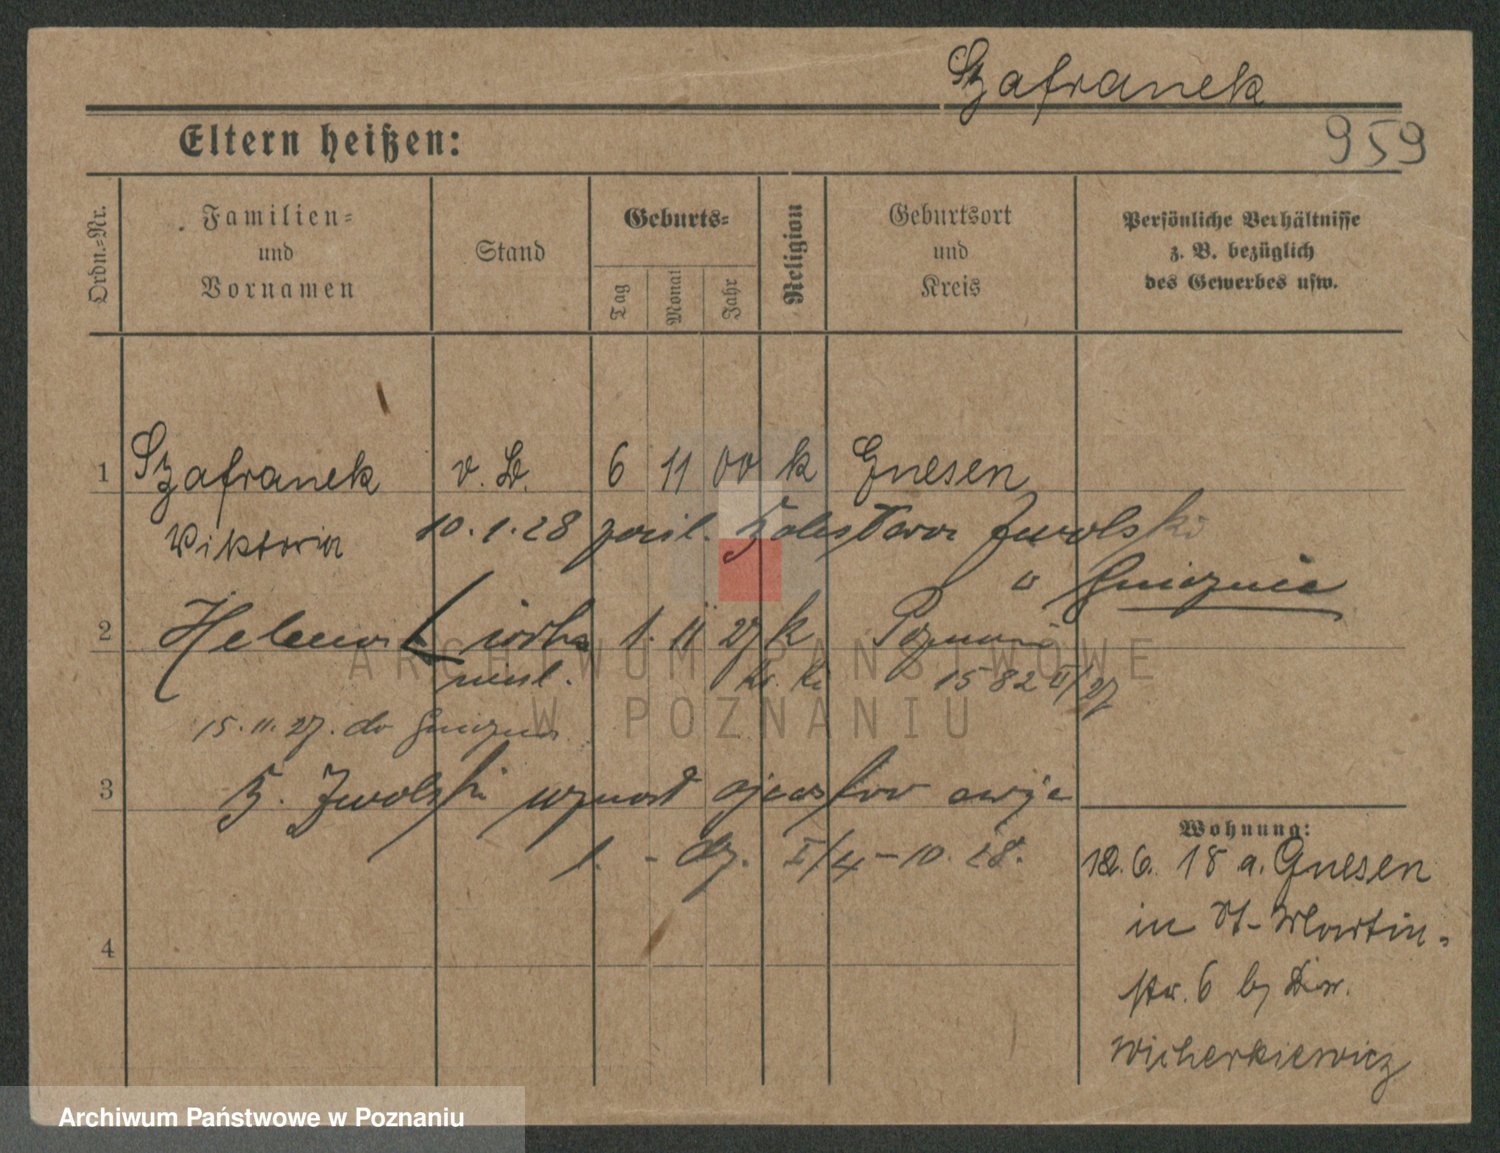 Szafranek
959
Eltern heißen:
Ordn.-Nr.
Familien-
und
Vornamen
Stand
Geburts-
Tag
Monat
Jahr
Religion
Geburtsort
und
Kreis
Persönliche Verhältnisse
z. B. bezüglich
des Gewerbes usw.
1 Szafranek v. 6 11 00 k Gnesen
Wiktoria 10.1.28 Zwolski
Gnieznie
2 Helena córka 1. 11 27 k Poznań
nieśl. 1582 VI/27
15.11.27. do Gniezna
3 Zwolski uznał ojcostwo
I/4-10.28.
4
Wohnung:
12.6. 18 a. Gnesen
in St-Martin-
str. 6 b/
Wicherkiewicz
ARCHIWUM PAŃSTWOWE
W POZNANIU
Archiwum Państwowe w Poznaniu